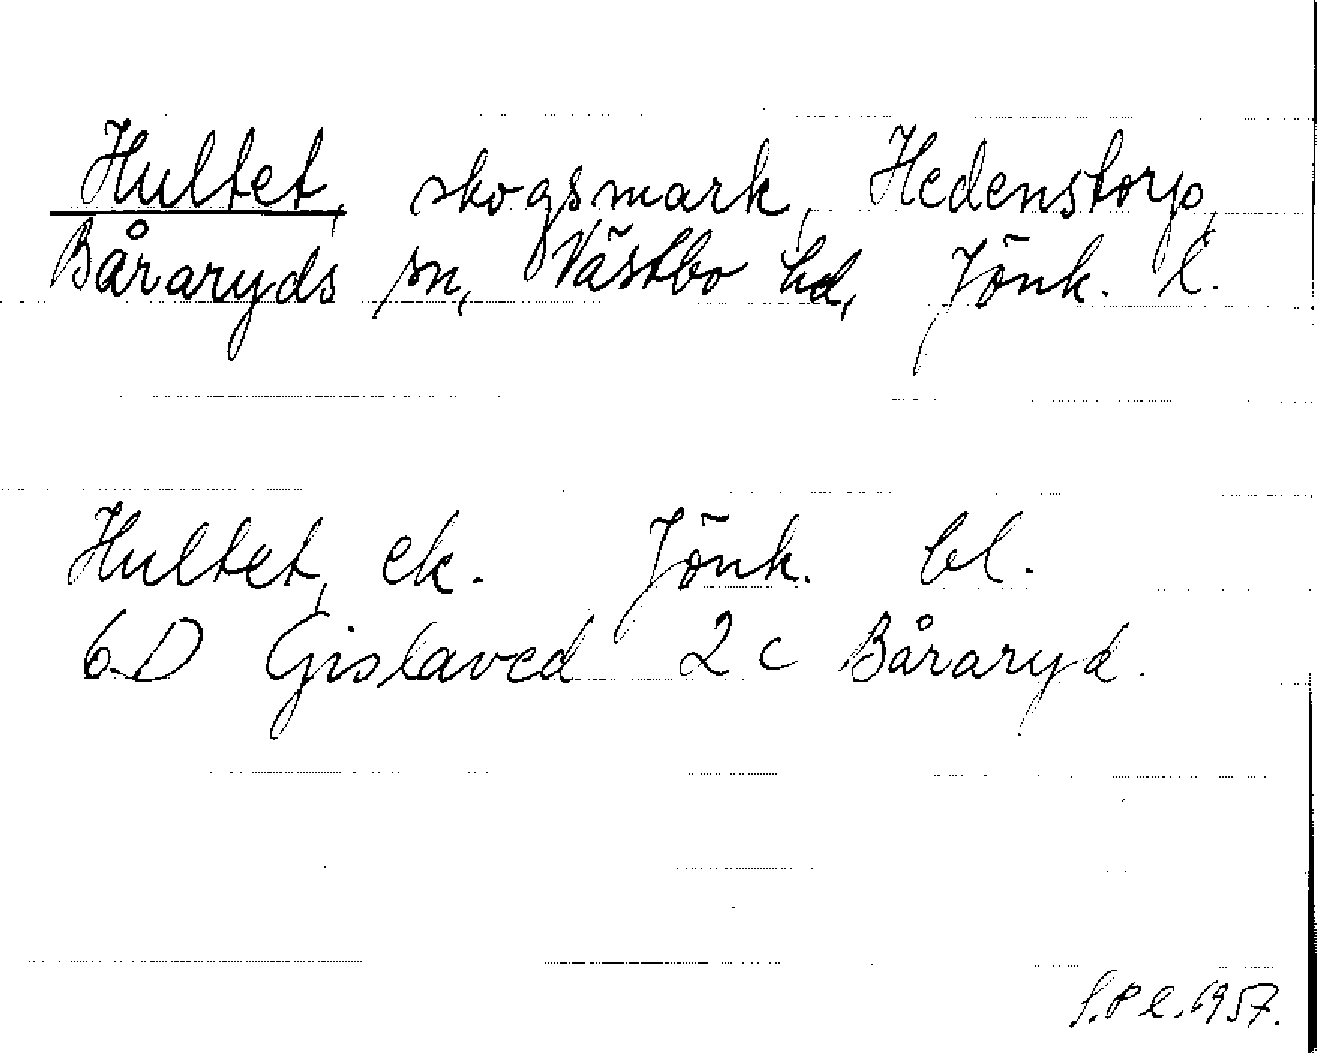 Hultet, skogsmark, Hedenstorp,
Båraryds sn, Västbo hd, Jönk. l.
Hultet, ek. Jönk. bl.
6D Gislaved 2c Båraryd.
S.P l. 1957.